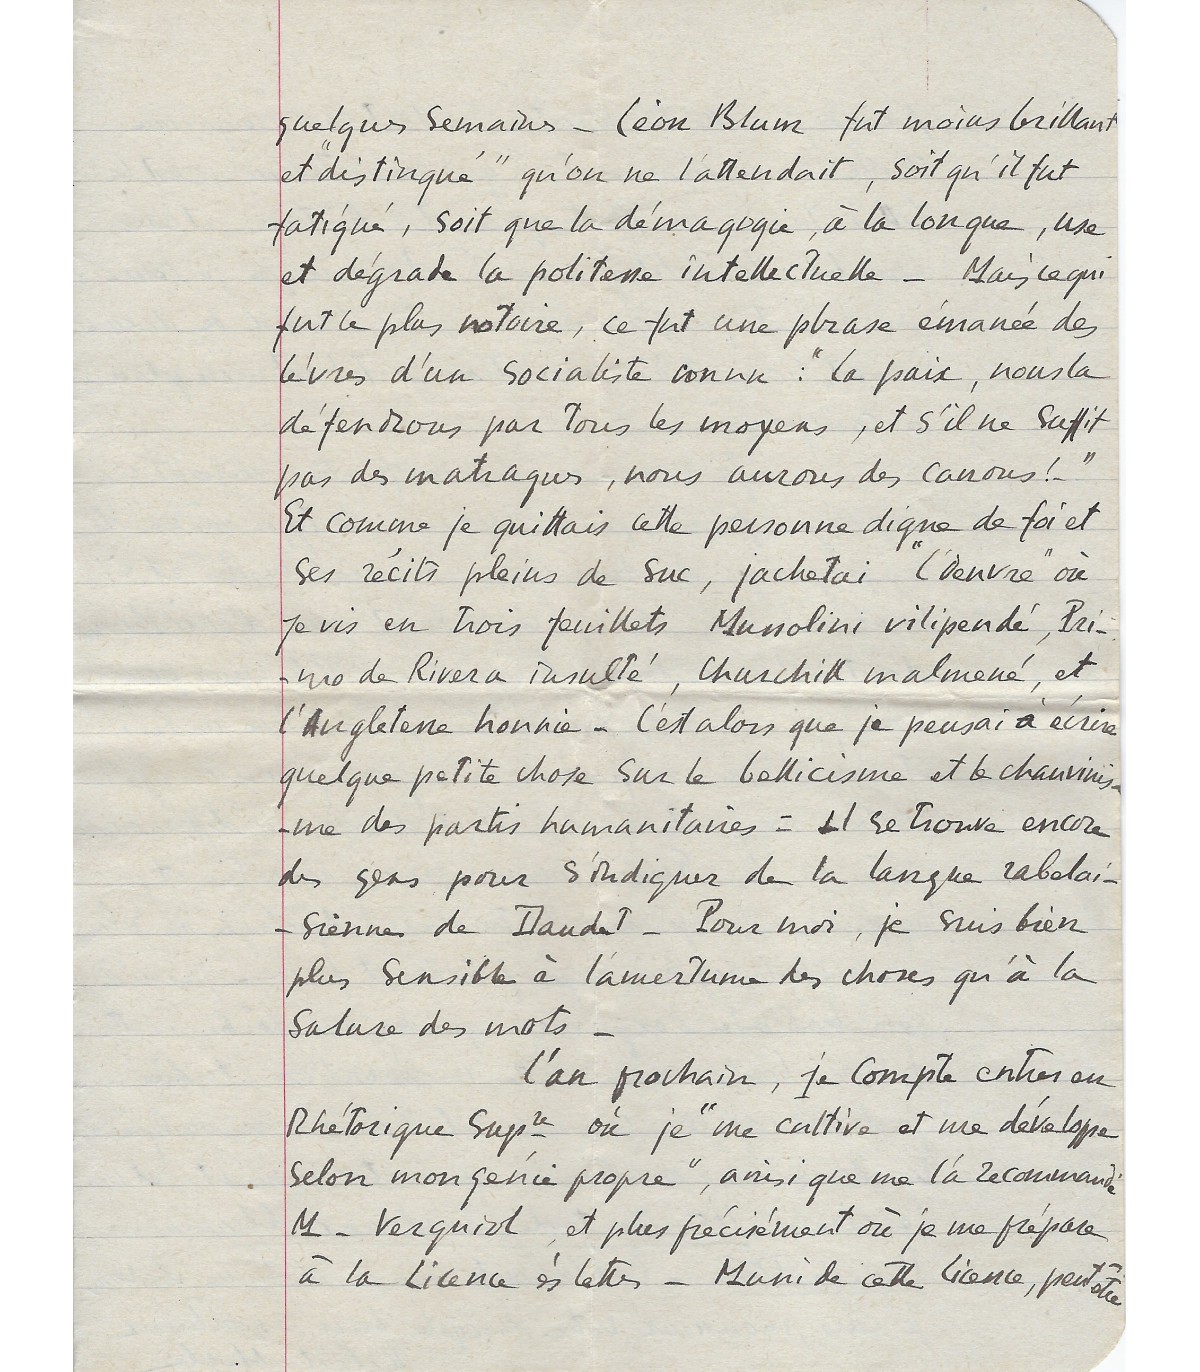 quelques semaines – Léon Blum fut moins brillant
et "distingué" qu'on ne l'attendait, soit qu'il fut
fatigué, soit que la démagogie, à la longue, use
et dégrade la politesse intellectuelle – Mais ce qui
fut le plus notoire, ce fut une phrase émanée des
lèvres d'un socialiste connu : "La paix, nous la
défendrons par tous les moyens, et s'il ne suffit
pas des matraques, nous aurons des canons! –"
Et comme je quittais cette personne digne de foi et
ses récits pleins de suc, j'achetai "L'Oeuvre" où
je vis en trois feuillets Mussolini vilipendé, Pri-
-mo de Rivera insulté, Churchill malmené, et
l'Angleterre honnie – C'est alors que je pensai à écrire
quelque petite chose sur le bellicisme et le chauvinis-
-me des partis humanitaires = Il se trouve encore
des gens pour s'indigner de la langue rabelai-
-sienne de Daudet – Pour moi, je suis bien
plus sensible à l'amertume des choses qu'à la
salure des mots –
L'an prochain, je compte entrer en
Rhétorique Supre où je "me cultive et me développe
selon mon génie propre", ainsi que me l'a recommandé
M – Vergniol et plus précisément où je me prépare
à la Licence ès lettres – Muni de cette licence, peut-être